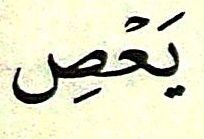 يَعْصِ